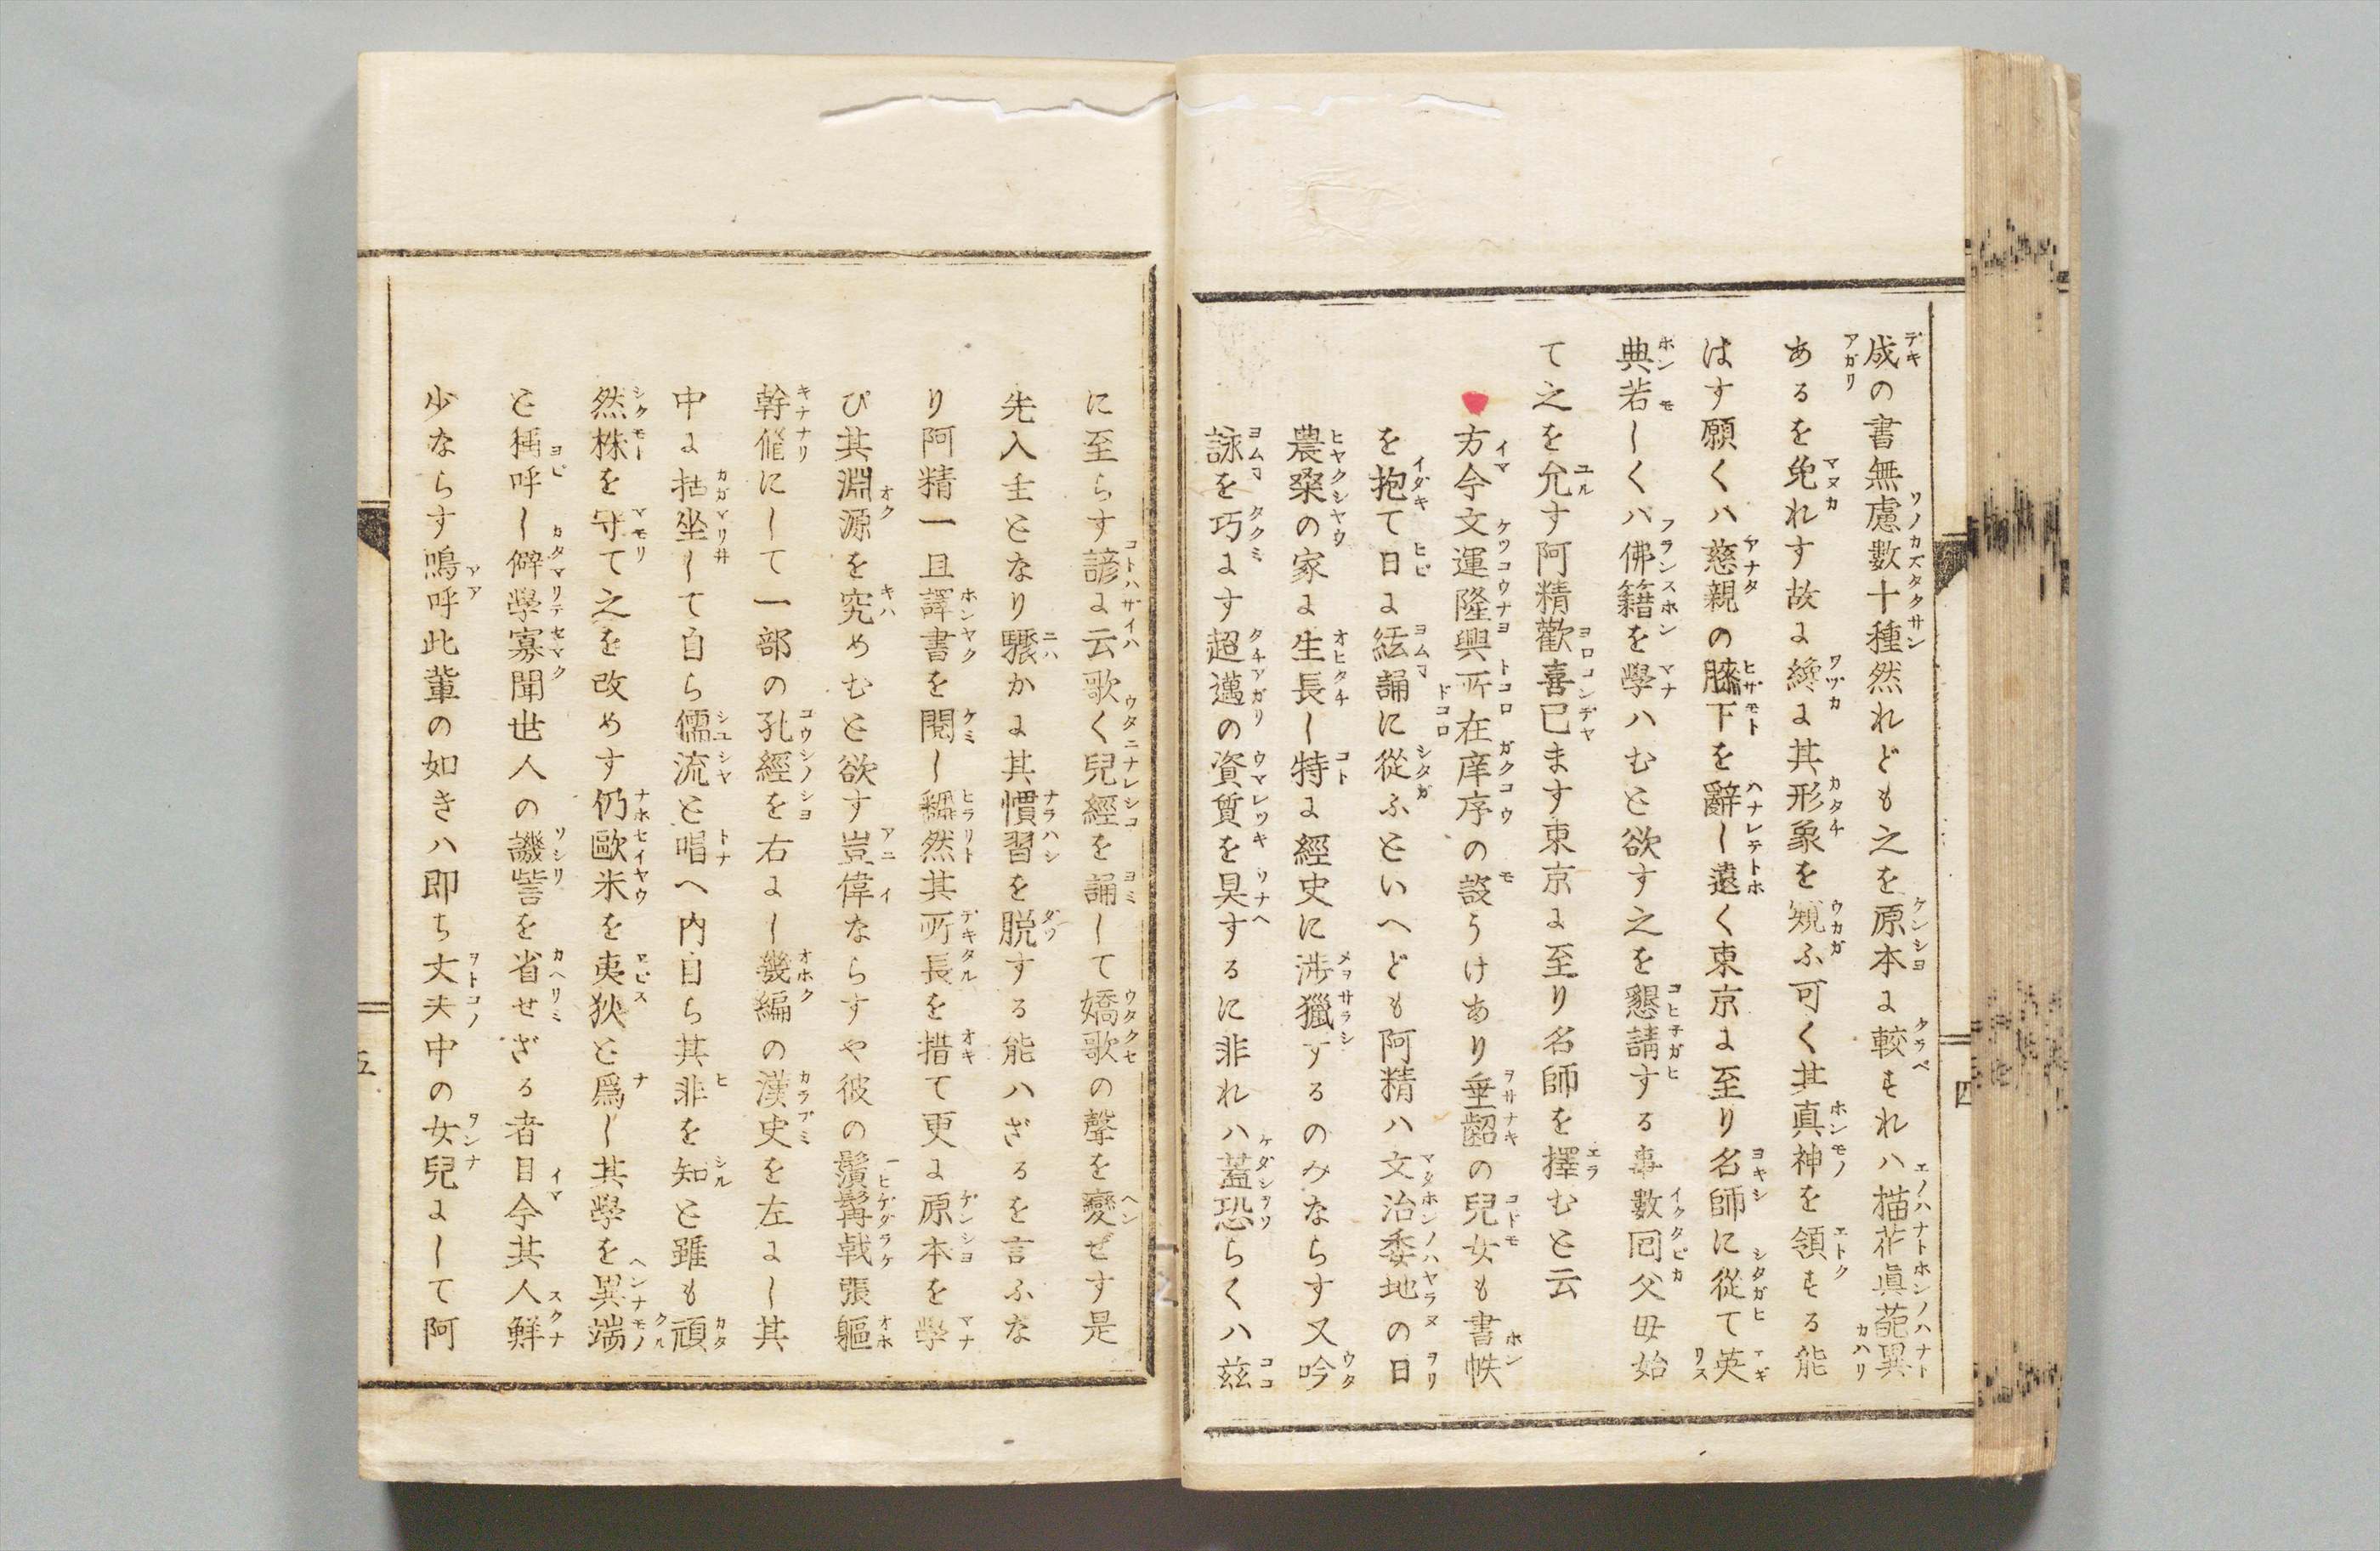 成の書無慮數十種然れども之を原本に較すれハ描花眞葩異
あるを免れす故に纔に其形象を窺ふ可く其真神を領する能
はす願くハ慈親の膝下を辭し遠く東京に至り名師に從て英
典若しくハ佛籍を學ハむと欲す之を懇請する事數回父母始
て之を允す阿精歡喜已ます東京に至り名師を擇むと云
方今文運隆興所在庠序の設うけあり垂齠の兒女も書帙
を抱て日に絃誦に從ふといへども阿精ハ文治委地の日
農桑の家に生長し特に經史に渉獵するのみならす又吟
詠を巧にす超邁の資質を具するに非れハ蓋恐らくハ茲
四
に至らす諺に云歌く兒經を誦して嬌歌の聲を變ぜす是
先入主となり驟かに其慣習を脱する能ハざるを言ふな
り阿精一旦譯書を閲し飜然其所長を措て更に原本を學
び其淵源を究めむと欲す豈偉ならすや彼の鬚髯戟張軀
幹偉にして一部の孔經を右にし幾編の漢史を左にし其
中に拈坐して自ら儒流と唱へ内自ら其非を知と雖も頑
然株を守て之を改めす仍歐米を夷狄と爲し其學を異端
と稱呼し僻學寡聞世人の譏訾を省せざる者目今其人鮮
少ならす嗚呼此輩の如きハ即ち丈夫中の女兒にして阿
五